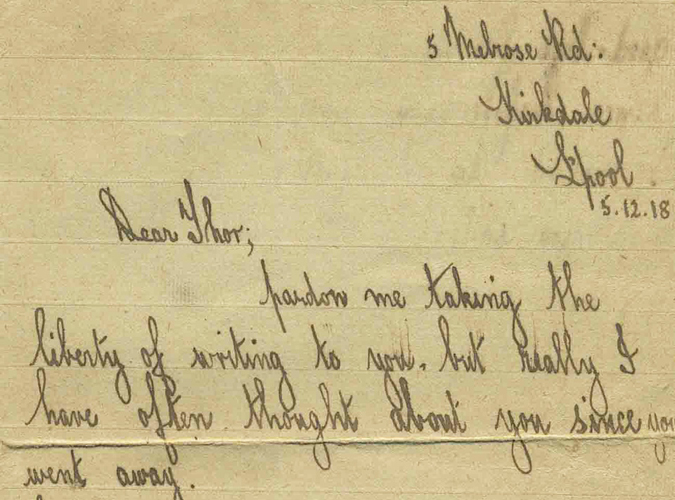 5 Melrose Rd:
Kirkdale
L'pool.
5.12.18
Dear Thor;
pardon me taking the
liberty of writing to you. but really I
have often thought about you since you
went away.